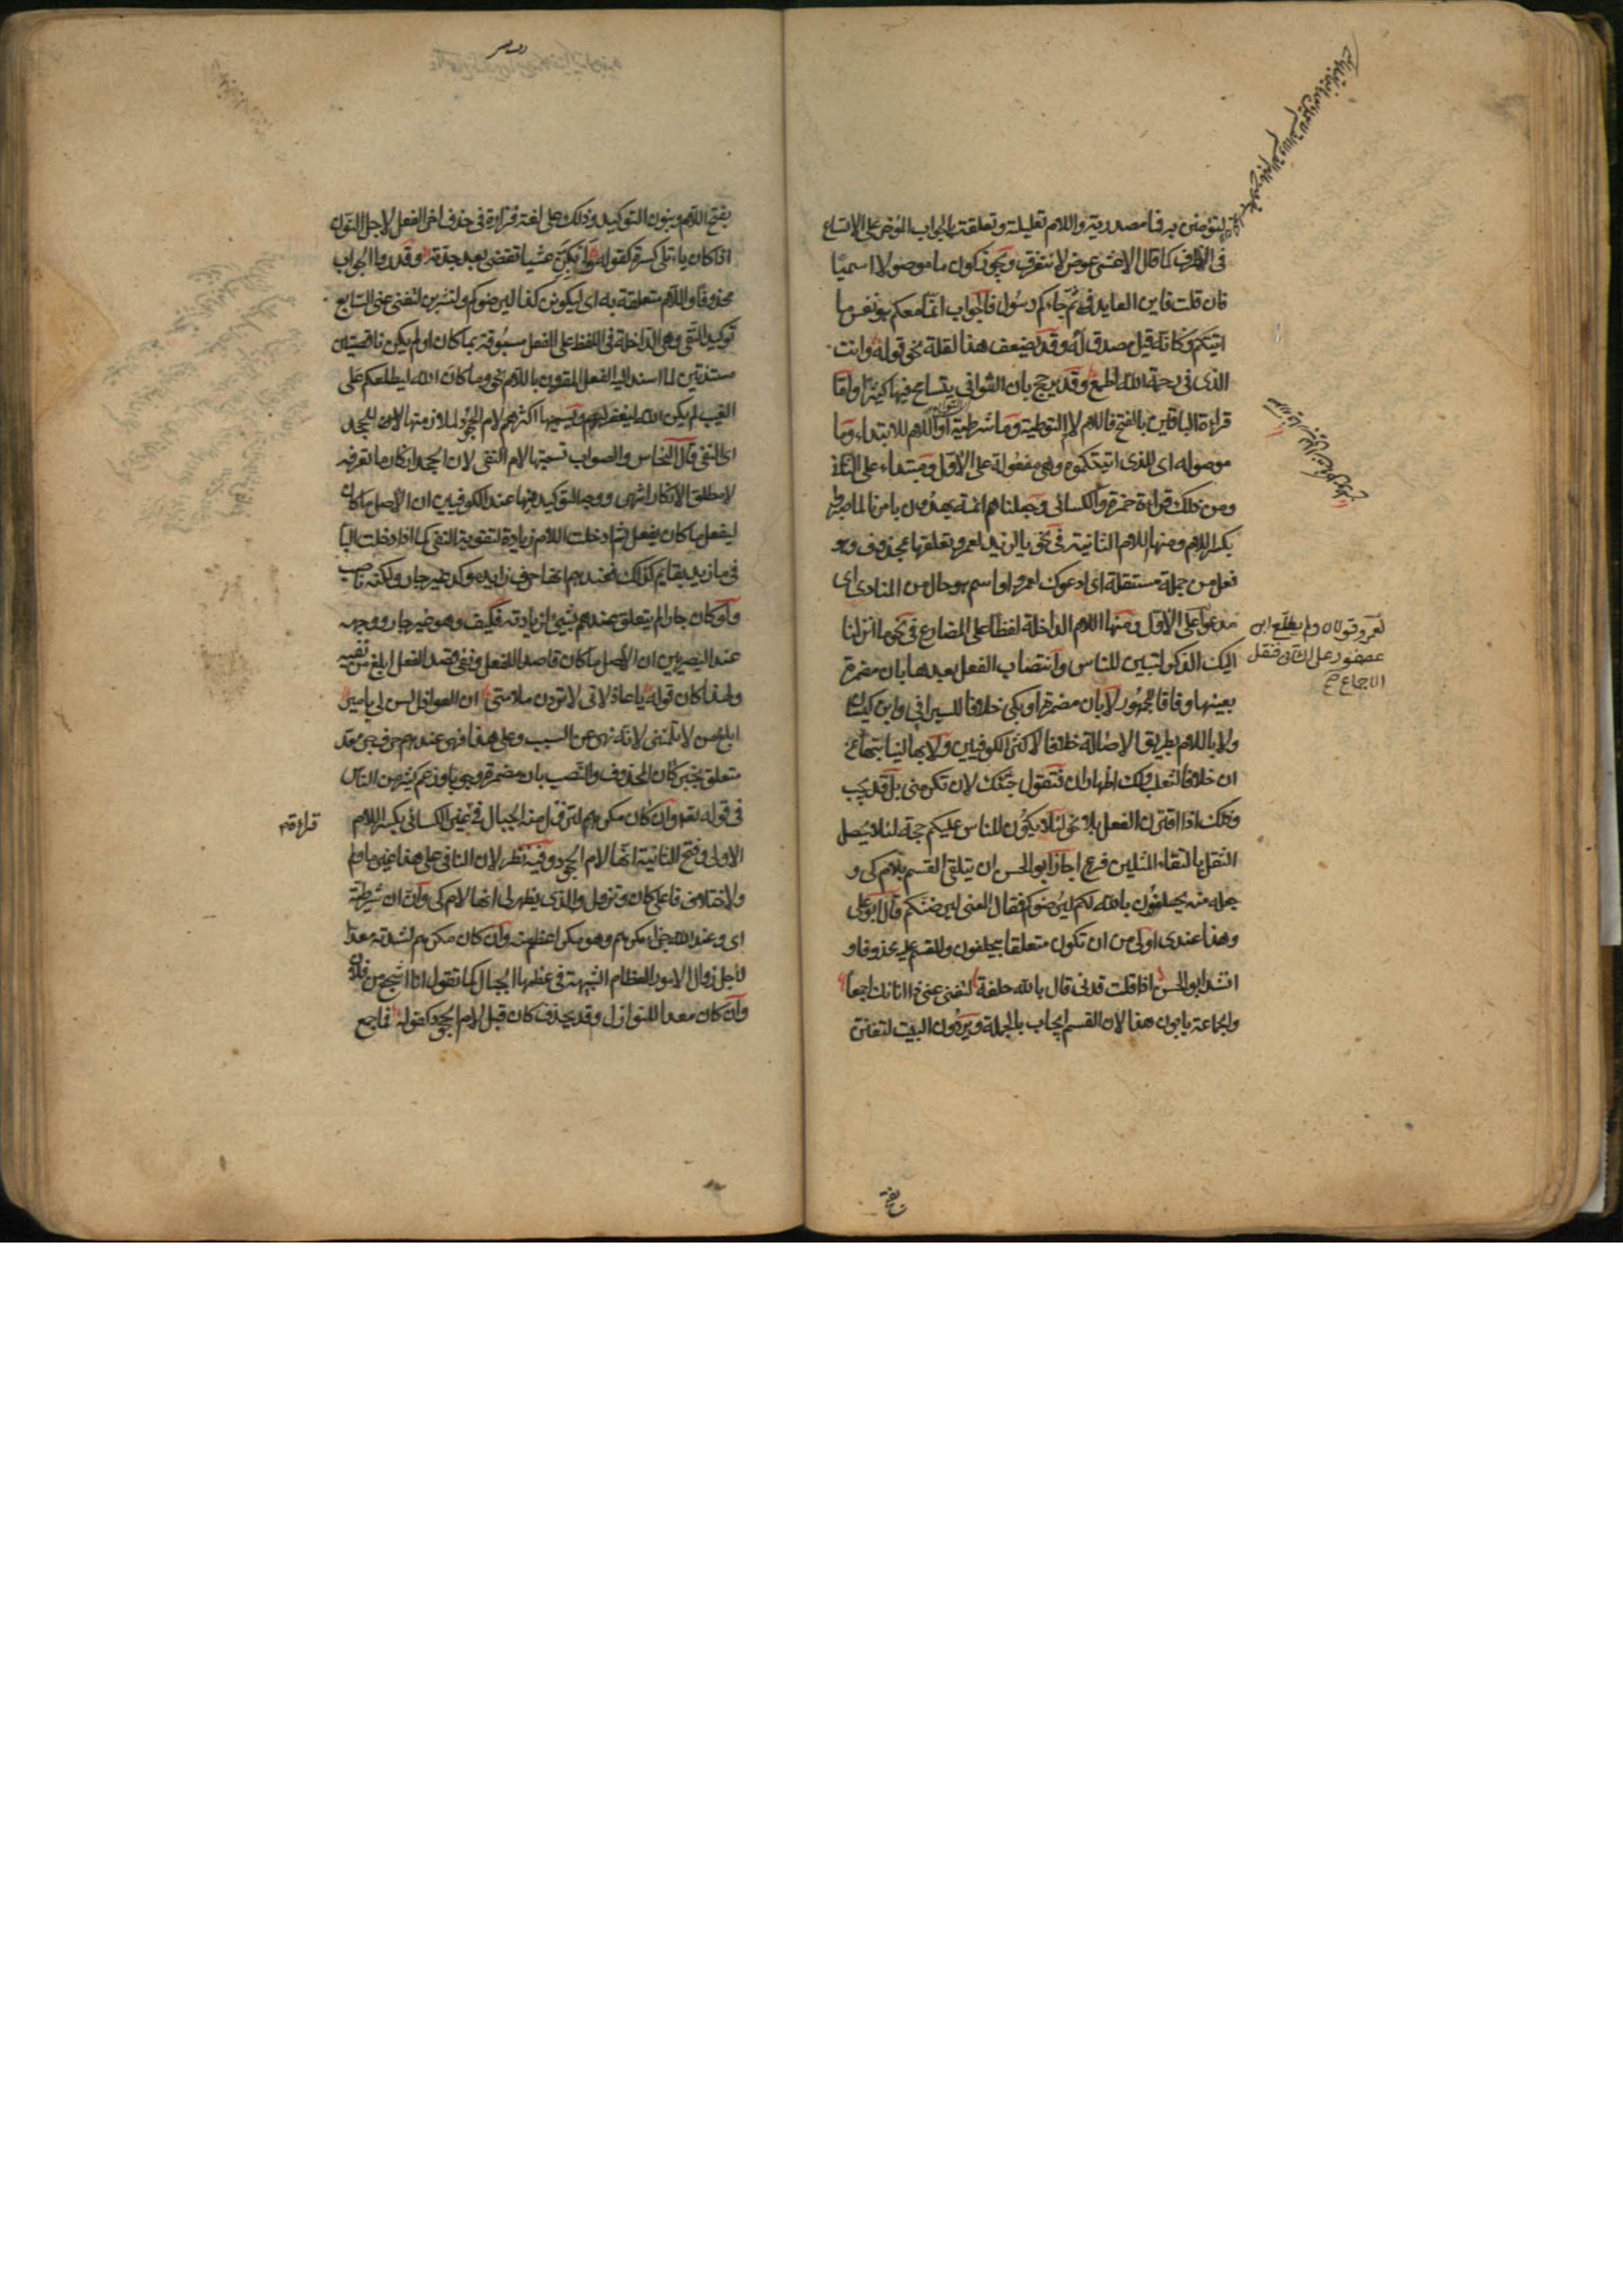 لتؤمنن به فما مصدرية واللام تعليلية وتعلقت بالجواب المؤخر على الاتساع
فى الظرف كما قال الاعشى عوض لا نتفرق ويجوز كون ما موصولا اسميا
فان قلت فاين العايد فى ثم جاءكم رسول فالجواب ان ما معكم هو نفس ما
اتيتكم وكانه قيل مصدق له وقد يضعف هذا لقلة نحو قوله وانت
الذى فى رحمة الله اطمع وقد يرجح بان الثوانى يتسامح فيها كثيرا واما
قراءة الباقين بالفتح فاللام لام التوطية وما شرطية او اللام للابتداء وما
موصوله اى للذى اتيتكموه وهى مفعولة على الاول ومبتداء على الثانى
ومن ذلك قراءة حمزة والكسائى وجعلنا هم ائمة يهدون بامرنا لما صبروا
بكسر اللام ومنها اللام الثانية فى نحو يا لزيد لعمرو وتعلقها بمحذوف وهو
فعل من جملة مستقلة اى ادعوك لعمرو او اسم هو حال من المنادى اى
مدعوا على الاول ومنها اللام الداخلة لفظا على المضارع فى نحو وانزلنا
اليك الذكر لتبين للناس وانتصاب الفعل بعدها بان مضمرة
بعينها وفاقا للجمهور لا بان مضمرة او بكى خلافا للسيرافى وابن كيسان
ولا باللام بطريق الاصالة خلافا لاكثر الكوفيين ولا بها لنيابتها عن
ان خلافا لثعلب ولك اظهار ان فتقول جئتك لان تكرمنى بل قد يجب
وذلك اذا اقترن الفعل بلا نحو لئلا يكون للناس عليكم حجة لئلا يحصل
الثقل بالتقاء المثلين فرع اجاز ابو الحسن ان يتلقى القسم بلام كى و
جعل منه يحلفون بالله لكم ليرضوكم فقال المعنى ليرضنكم قال ابو على
وهذا عندى اولى من ان تكون متعلقا بيحلفون والمقسم عليه محذوفا و
انشد ابو الحسن اذا قلت قدنى قال بالله حلفة لتغنى عنى ذا انائك اجمعا
والجماعة يابون هذا لان القسم انما يجاب بالجملة ويروون البيت لتغنن
لعمرو قولان ولم يطلع ابن
عصفور على الثانى فنقل
الاجماع صح
بفتح
بفتح اللام وبنون التوكيد وذلك على لغة فزارة فى حذف اخر الفعل لاجل النون
اذا كان ياء تلى كسرة كقوله وابكن عيشا تقضى بعد جدته وقدروا الجواب
محذوفا واللام متعلقة به اى ليكونن كذا ليرضوكم ولتشربن لتغنى عنى السابع
توكيد النفى وهى الداخلة فى اللفظ على الفعل مسبوقة بما كان او لم يكن ناقصتين
مسندتين لما اسند اليه الفعل المقرون باللام نحو وما كان الله ليطلعكم على
الغيب لم يكن الله ليغفر لهم ويسميها اكثرهم لام الجحود لملازمتها للجحد
اى النفى قال النحاس والصواب تسميتها لام النفى لان الجحد انكار ما تعرفه
لا مطلق الانكار انتهى ووجه التوكيد فيها عند الكوفيين ان الاصل ما كان
ليفعل ما كان يفعل ثم ادخلت اللام زيادة لتقوية النفى كما ادخلت الباء
فى ما زيد بقايم لذلك فعندهم انها حرف زايد مؤكد غير جار ولكنه ناصب
ولو كان جارا لم يتعلق عندهم بشىء لزيادته فكيف وهو غير جار ووجهه
عند البصريين ان الاصل ما كان قاصدا للفعل ونفى قصد الفعل ابلغ من نفيه
ولهذا كان قوله يا عاذلاتى لا تردن ملامتى ان العواذل لسن لى بامير
ابلغ من لا تلمننى لانه نهى عن السبب وعلى هذا فهى عندهم حرف جر معد
متعلق بخبر كان المحذوف والنصب بان مضمرة وجوبا وزعم كثير من الناس
فى قوله تعالى وان كان مكرهم لتزول منه الجبال فى غير الكسائى بكسر اللام
الاولى وفتح الثانية انها لام الجحود وفيه نظر لان النافى على هذا غير ما ولم
ولاختلاف فاعلى كان وتزول والذى يظهر لى انها لام كى وان ان شرطية
اى وعند الله جزاء مكرهم وهو مكر اعظم منه وان كان مكرهم لشدته معدا
لاجل زوال الامور العظام الشبيهة فى عظمها الجبال كما تقول انا اشجع من فلان
وان كان معدا للنوازل وقد يحذف كان قبل لام الجحود كقوله فما جمع
قراءة